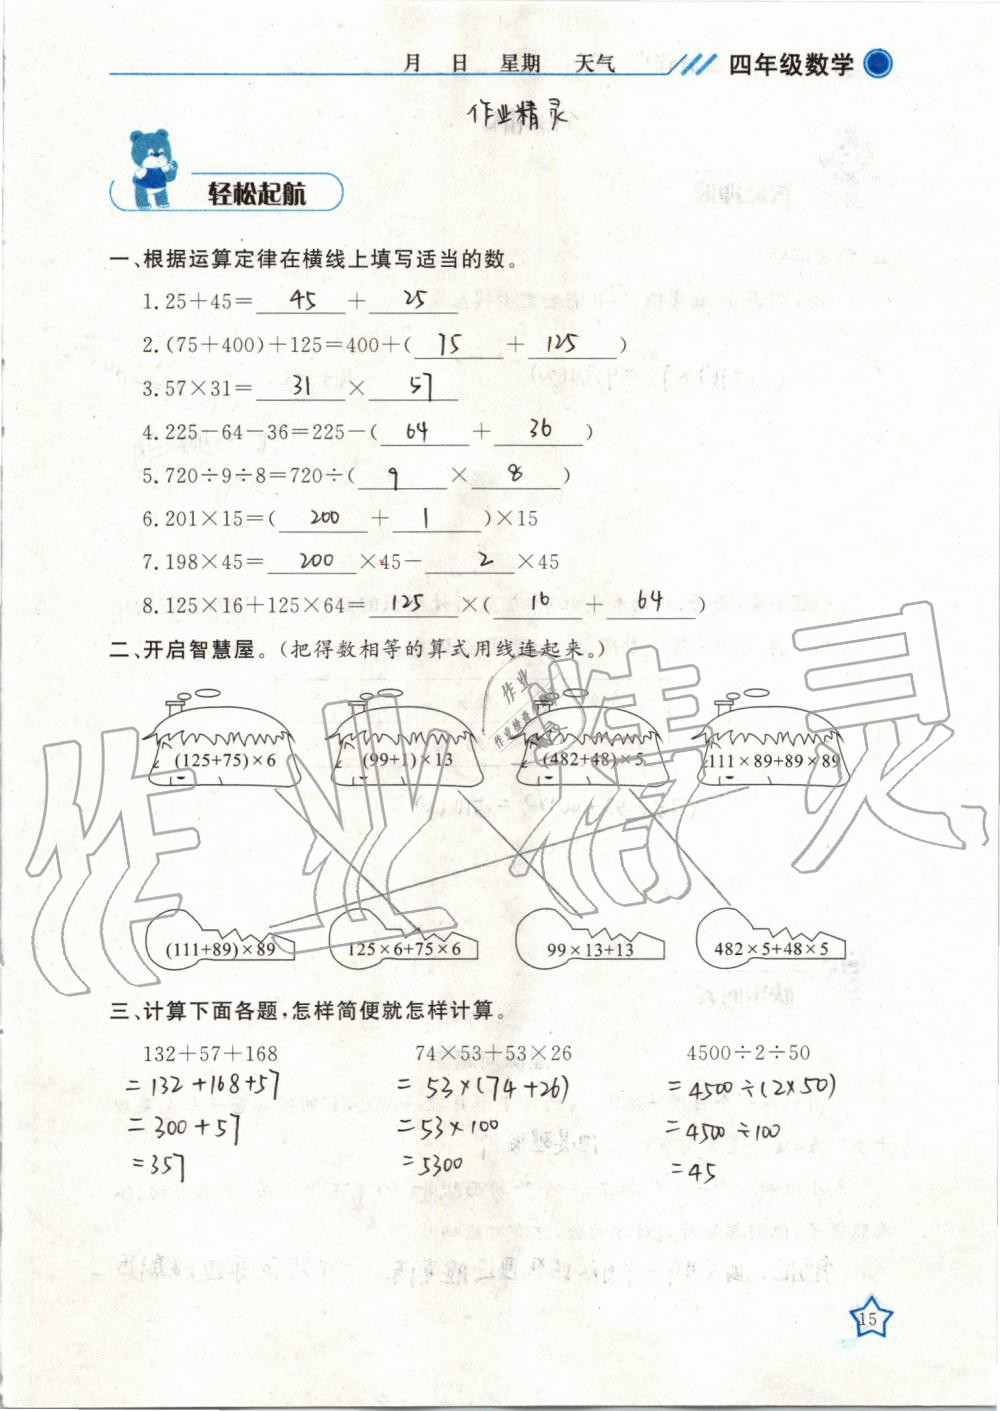 月 日 星期 天气 四年级数学
作业精灵
轻松起航
一、根据运算定律在横线上填写适当的数。
1.25+45= 45 + 25
2.(75+400)+125=400+( 75 + 125 )
3.57×31= 31 × 57
4.225-64-36=225-( 64 + 36 )
5.720÷9÷8=720÷( 9 × 8 )
6.201×15=( 200 + 1 )×15
7.198×45= 200 ×45- 2 ×45
8.125×16+125×64= 125 ×( 16 + 64 )
二、开启智慧屋。(把得数相等的算式用线连起来。)
(125+75)×6 (99+1)×13 (482+48)×5 111×89+89×89
作业精灵
(111+89)×89 125×6+75×6 99×13+13 482×5+48×5
三、计算下面各题,怎样简便就怎样计算。
132+57+168 74×53+53×26 4500÷2÷50
=132+168+57 =53×(74+26) =4500÷(2×50)
=300+57 =53×100 =4500÷100
=357 =5300 =45
15